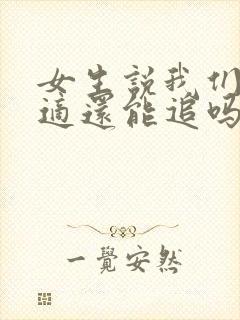 女生说我们
適還能追吗
一覺安然